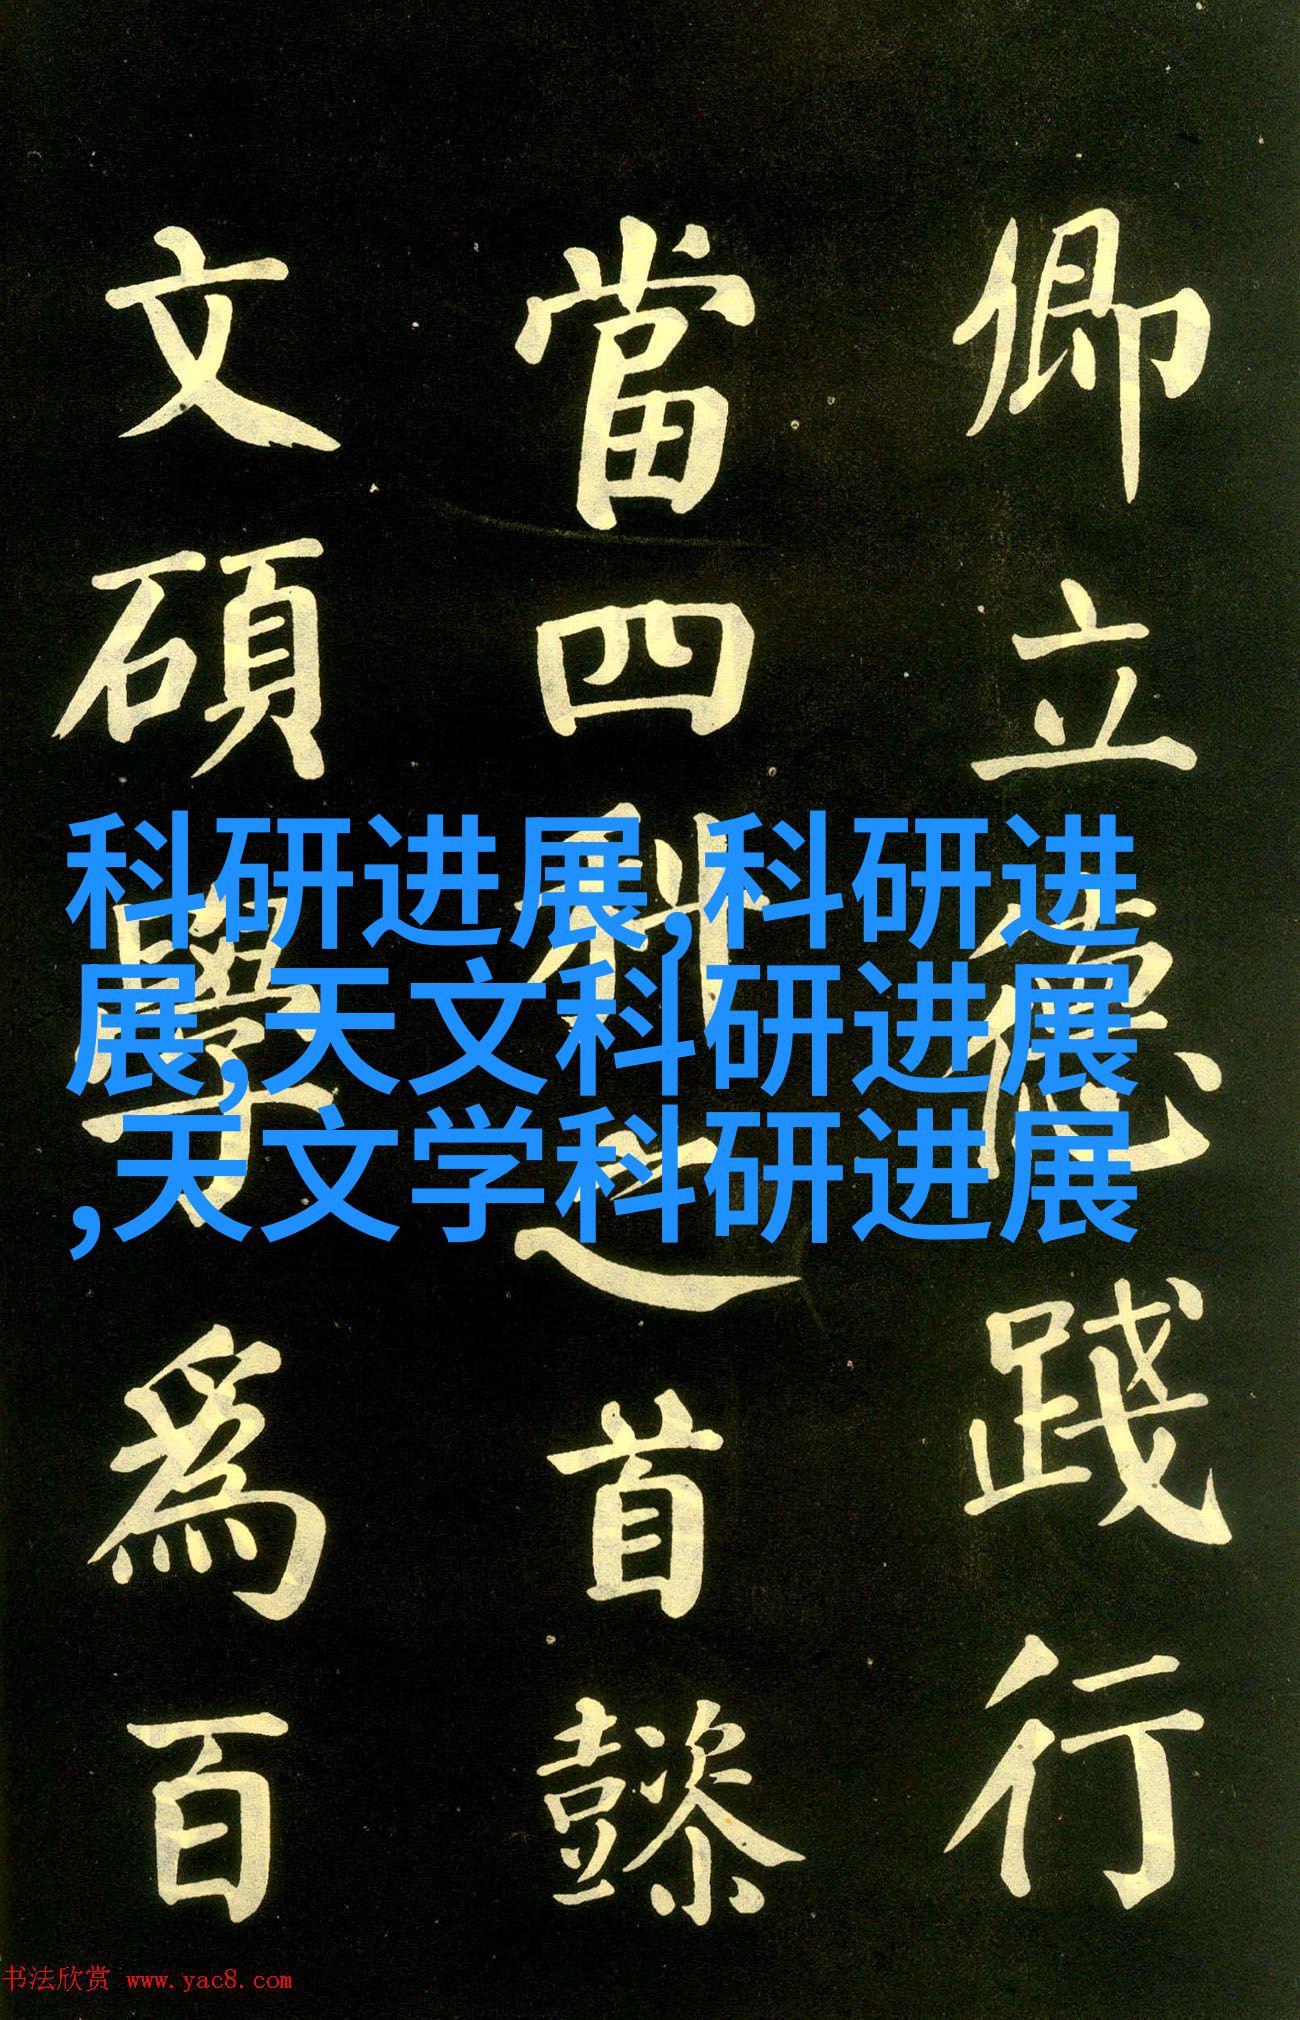 卿立德踐行
當四科之首懿
文碩學爲百
科研进展,科研进
展,天文科研进展
,天文学科研进展
书法欣赏 www.yac8.com